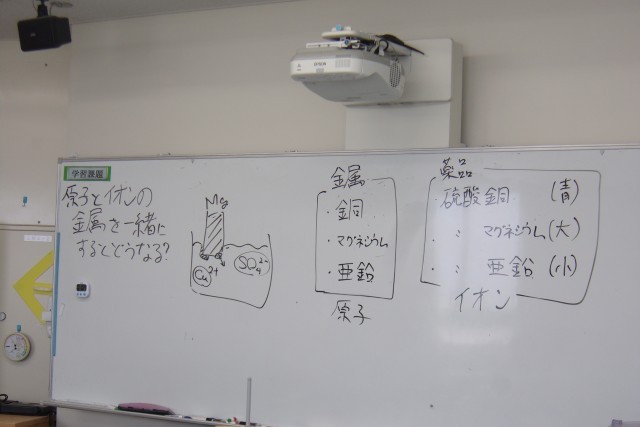 学習課題
原子とイオンの
金属を一緒に
するとどうなる?
Mg
Cu2+
SO42-
金属
・銅
・マグネシウム
・亜鉛
原子
薬品
・硫酸銅 (青)
・ 〃 マグネシウム(大)
・ 〃 亜鉛 (小)
イオン
EPSON